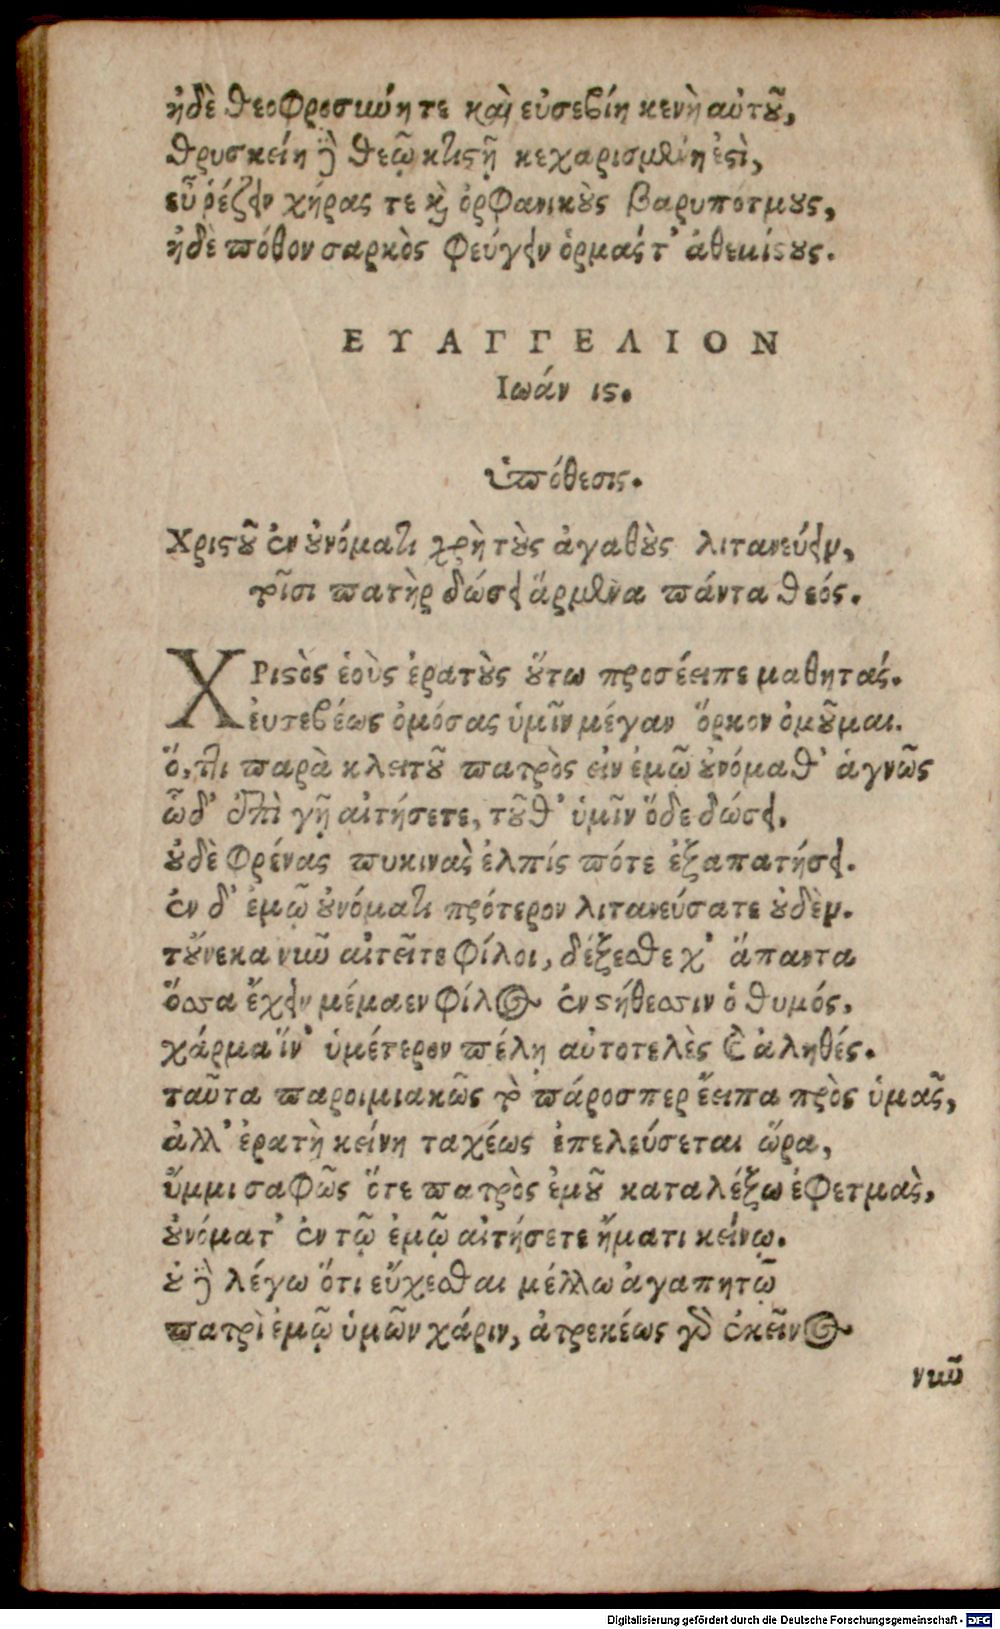 ἠδὲ θεοφροσύνη τε καὶ εὐσεβίη κενὴ αὐτοῦ,
θρυσκείη δὲ θεῷ κτιςῇ κεχαρισμένη ἐςὶ,
εὖ ῥέζειν χήρας τε καὶ ὀρφανικοὺς βαρυπότμους,
ἠδὲ πόθον σαρκὸς φεύγειν ὁρμάς τ' ἀθεμίςους.
ΕΥΑΓΓΕΛΙΟΝ
Ιωάν ις.
ὑπόθεσις.
Χριςοῦ ἐν οὐνόματι χρὴ τοὺς ἀγαθοὺς λιτανεύειν,
τοῖσι πατὴρ δώσει ἄρμενα πάντα θεός.
ΧΡιςὸς ἑοὺς ἐρατοὺς οὕτω προσέειπε μαθητάς.
ἐυτεβέως ὀμόσας ὑμῖν μέγαν ὅρκον ὀμοῦμαι.
ὅ, τι παρὰ κλειτοῦ πατρὸς εἰν ἐμῷ οὐνόμαθ' ἁγνῶς
ὧδ' ἐπὶ γῇ αἰτήσετε, τοῦθ' ὑμῖν ὅδε δώσει.
οὐδὲ φρένας πυκινὰς ἐλπίς πότε ἐξαπατήσει.
ἐν δ' ἐμῷ οὐνόματι πρότερον λιτανεύσατε οὐδὲν.
τοὔνεκα νῦν αἰτεῖτε φίλοι, δέξεσθε χ' ἅπαντα
ὅσσα ἔχειν μέμαεν φίλος ἐν ςήθεσσιν ὁ θυμός,
χάρμα ἵν' ὑμέτερον πέλῃ αὐτοτελὲς καὶ ἀληθές.
ταῦτα παροιμιακῶς τὸ πάροσπερ ἔειπα πρὸς ὑμᾶς,
ἀλλ' ἐρατὴ κείνη ταχέως ἐπελεύσεται ὥρα,
ὔμμι σαφῶς ὅτε πατρὸς ἐμοῦ καταλέξω ἐφετμὰς,
οὐνόματ' ἐν τῷ ἐμῷ αἰτήσετε ἤματι κείνῳ.
οὐ δὲ λέγω ὅτι εὔχεσθαι μέλλω ἀγαπητῷ
πατρὶ ἐμῷ ὑμῶν χάριν, ἀτρεκέως γὰρ ἐκεῖνος
νῦν
Digitalisierung gefördert durch die Deutsche Forschungsgemeinschaft - DFG